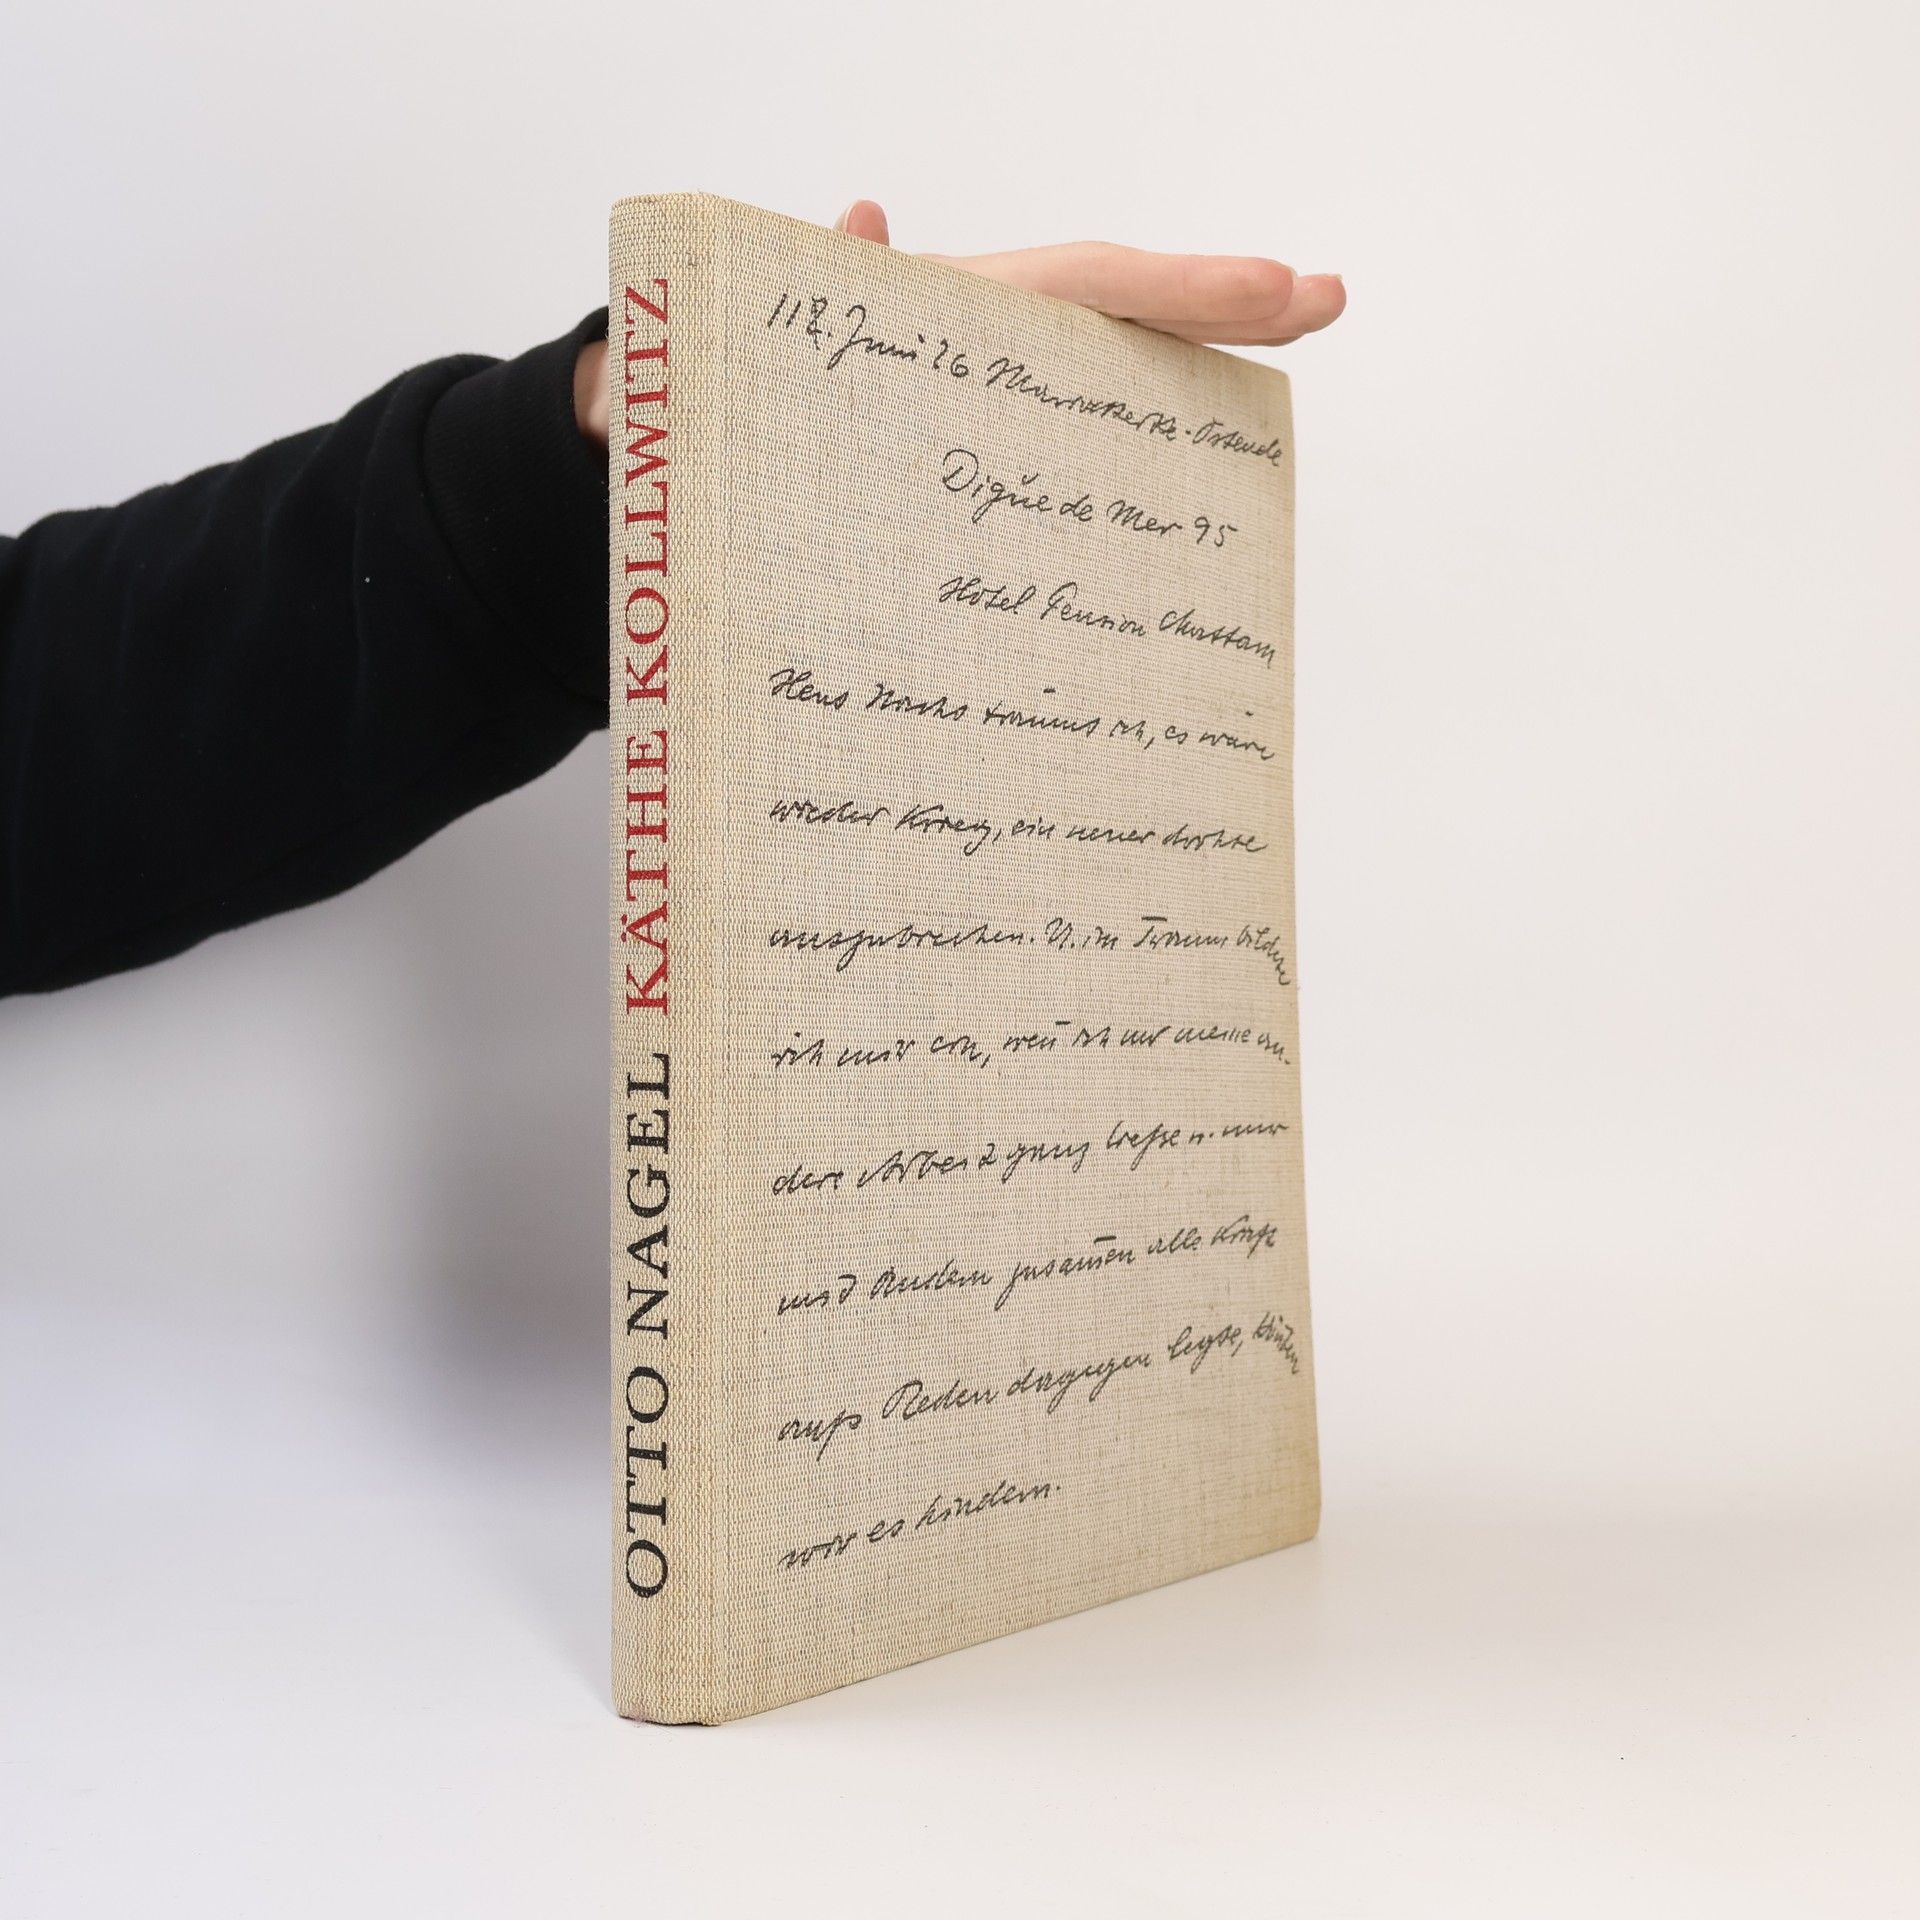 OTTO NAGEL KÄTHE KOLLWITZ
Juni 26 Mariakerke-Ostende
Digue de Mer 95
Hotel Pension
Heut Nacht träumt ich, es wäre
wieder Krieg, ein neuer drohte
auszubrechen. U. im Traum bildete
ich mir ein, wen̅ ich nur meine an-
dere Arbeit ganz ließe u. nur
mit Andern zusam̅en alle Kraft
aufs Reden dagegen legte, könten
wir es hindern.